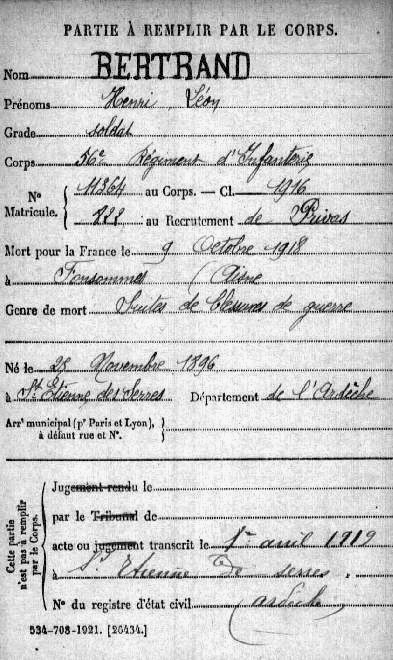 PARTIE À REMPLIR PAR LE CORPS.
Nom BERTRAND
Prénoms Henri Léon
Grade soldat
Corps 56e Régiment d'Infanterie
No Matricule. { 11364 au Corps. — Cl. 1916
888 au Recrutement de Privas
Mort pour la France le 9 Octobre 1918
à Fonsommes (Aisne
Genre de mort Suites de blessures de guerre
Né le 25 Novembre 1896
à St Etienne de Serres Département de l'Ardèche
Arrt municipal (pr Paris et Lyon), }
à défaut rue et No. }
Cette partie n'est pas à remplir par le Corps.
Jugement rendu le
par le Tribunal de
acte ou jugement transcrit le 1er avril 1919
à St Etienne de serres
No du registre d'état civil (ardèche
534-708-1921. [26434.]